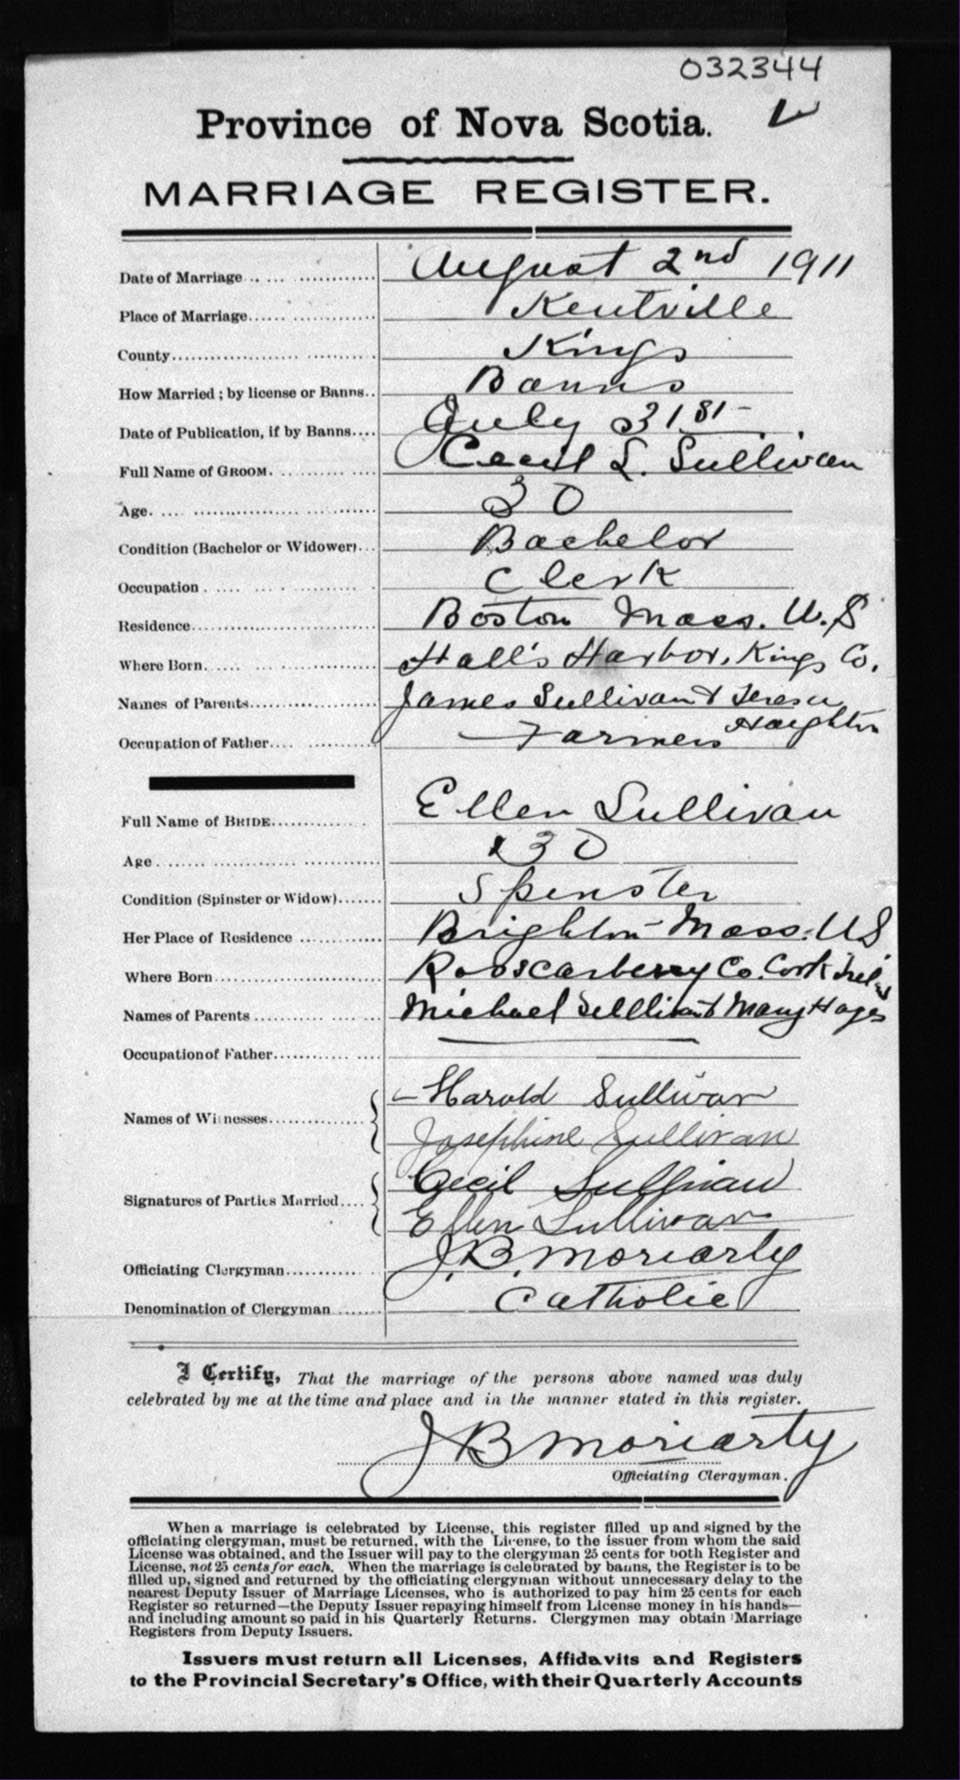 032344
Province of Nova Scotia.
MARRIAGE REGISTER.
Date of Marriage August 2nd 1911
Place of Marriage Kentville
County Kings
How Married; by license or Banns Banns
Date of Publication, if by Banns July 31st
Full Name of GROOM Cecil L. Sullivan
Age 30
Condition (Bachelor or Widower) Bachelor
Occupation Clerk
Residence Boston Mass. U.S
Where Born Hall's Harbor, Kings Co.
Names of Parents James Sullivan & Teresa
Haughton
Occupation of Father Farmers
Full Name of BRIDE Ellen Sullivan
Age 30
Condition (Spinster or Widow) Spinster
Her Place of Residence Brighton Mass. US
Where Born Rosscarberry Co. Cork
Names of Parents Michael Sullivan & Mary Hayes
Occupation of Father
Names of Witnesses Harold Sullivan
Josephine Sullivan
Signatures of Parties Married Cecil Sullivan
Ellen Sullivan
Officiating Clergyman J.B. Moriarty
Denomination of Clergyman Catholic
I Certify, That the marriage of the persons above named was duly
celebrated by me at the time and place and in the manner stated in this register.
J B Moriarty
Officiating Clergyman.
When a marriage is celebrated by License, this register filled up and signed by the
officiating clergyman, must be returned, with the License, to the issuer from whom the said
License was obtained, and the Issuer will pay to the clergyman 25 cents for both Register and
License, not 25 cents for each. When the marriage is celebrated by banns, the Register is to be
filled up, signed and returned by the officiating clergyman without unnecessary delay to the
nearest Deputy Issuer of Marriage Licenses, who is authorized to pay him 25 cents for each
Register so returned—the Deputy Issuer repaying himself from License money in his hands—
and including amount so paid in his Quarterly Returns. Clergymen may obtain Marriage
Registers from Deputy Issuers.
Issuers must return all Licenses, Affidavits and Registers
to the Provincial Secretary's Office, with their Quarterly Accounts